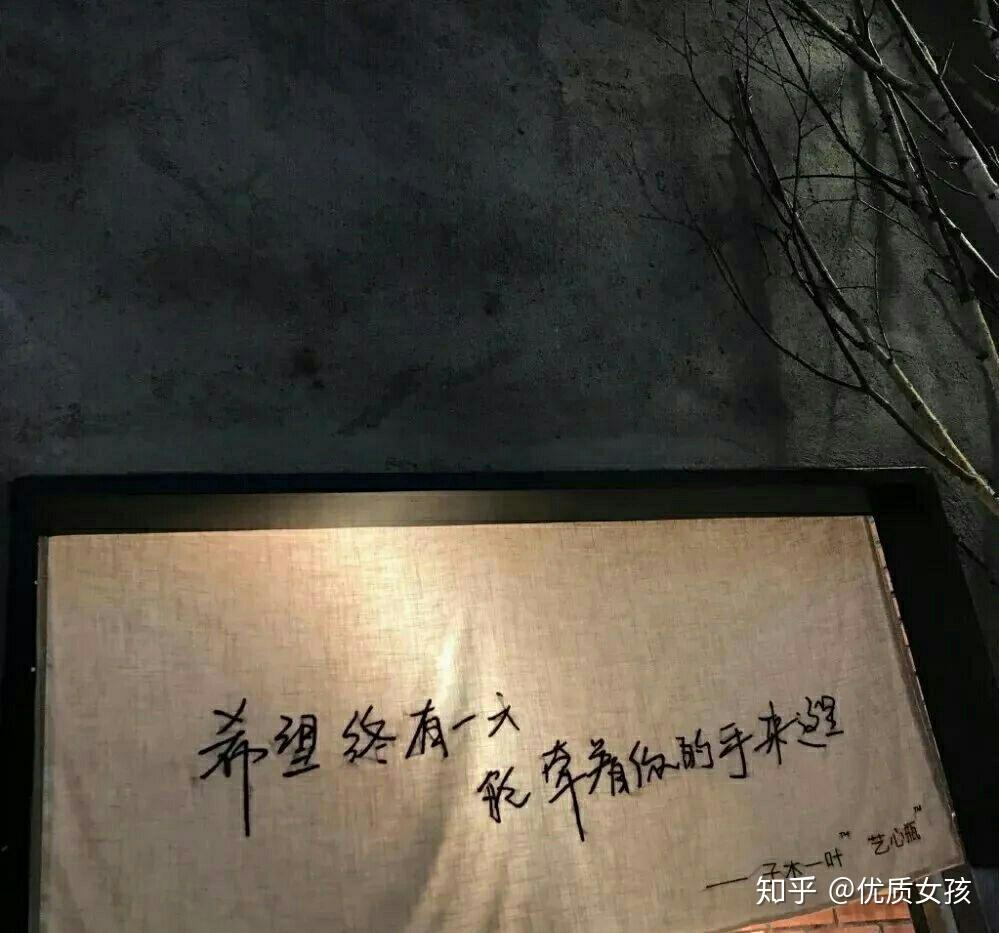 希望终有一天
能牵着你的手来这里
——子木一叶™ 艺心瓶™
知乎 @优质女孩